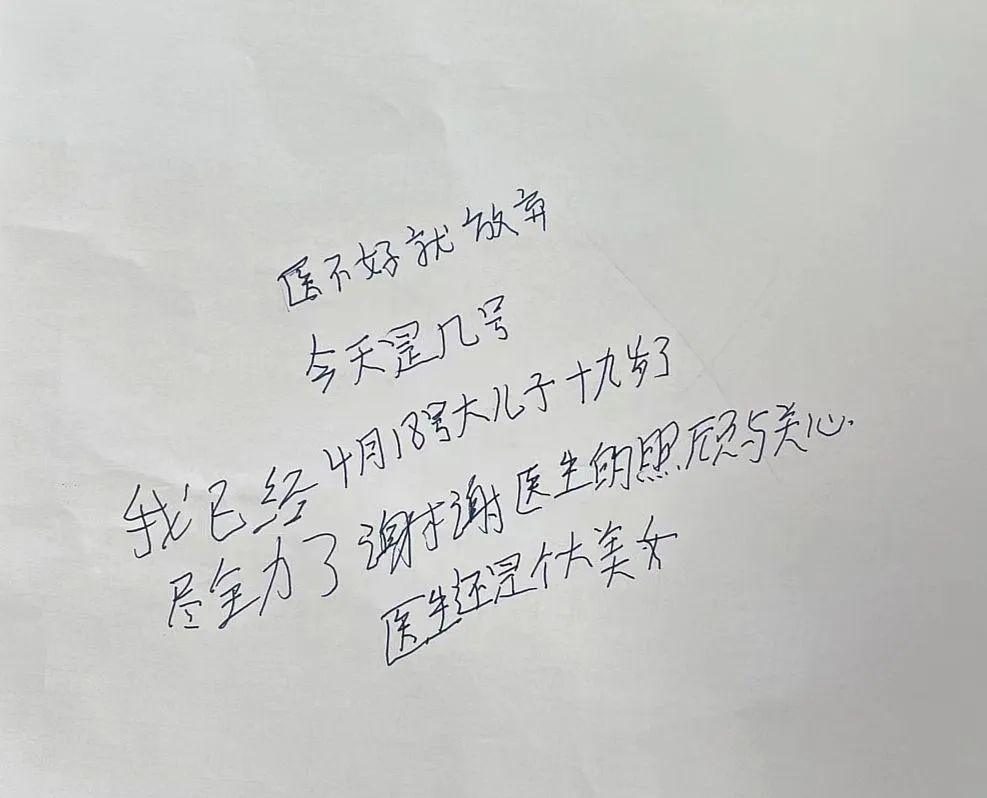 医不好就放弃
今天是几号
4月18号大儿子十九岁了
我已经
尽全力了
谢谢医生的照顾与关心.
医生还是个大美女